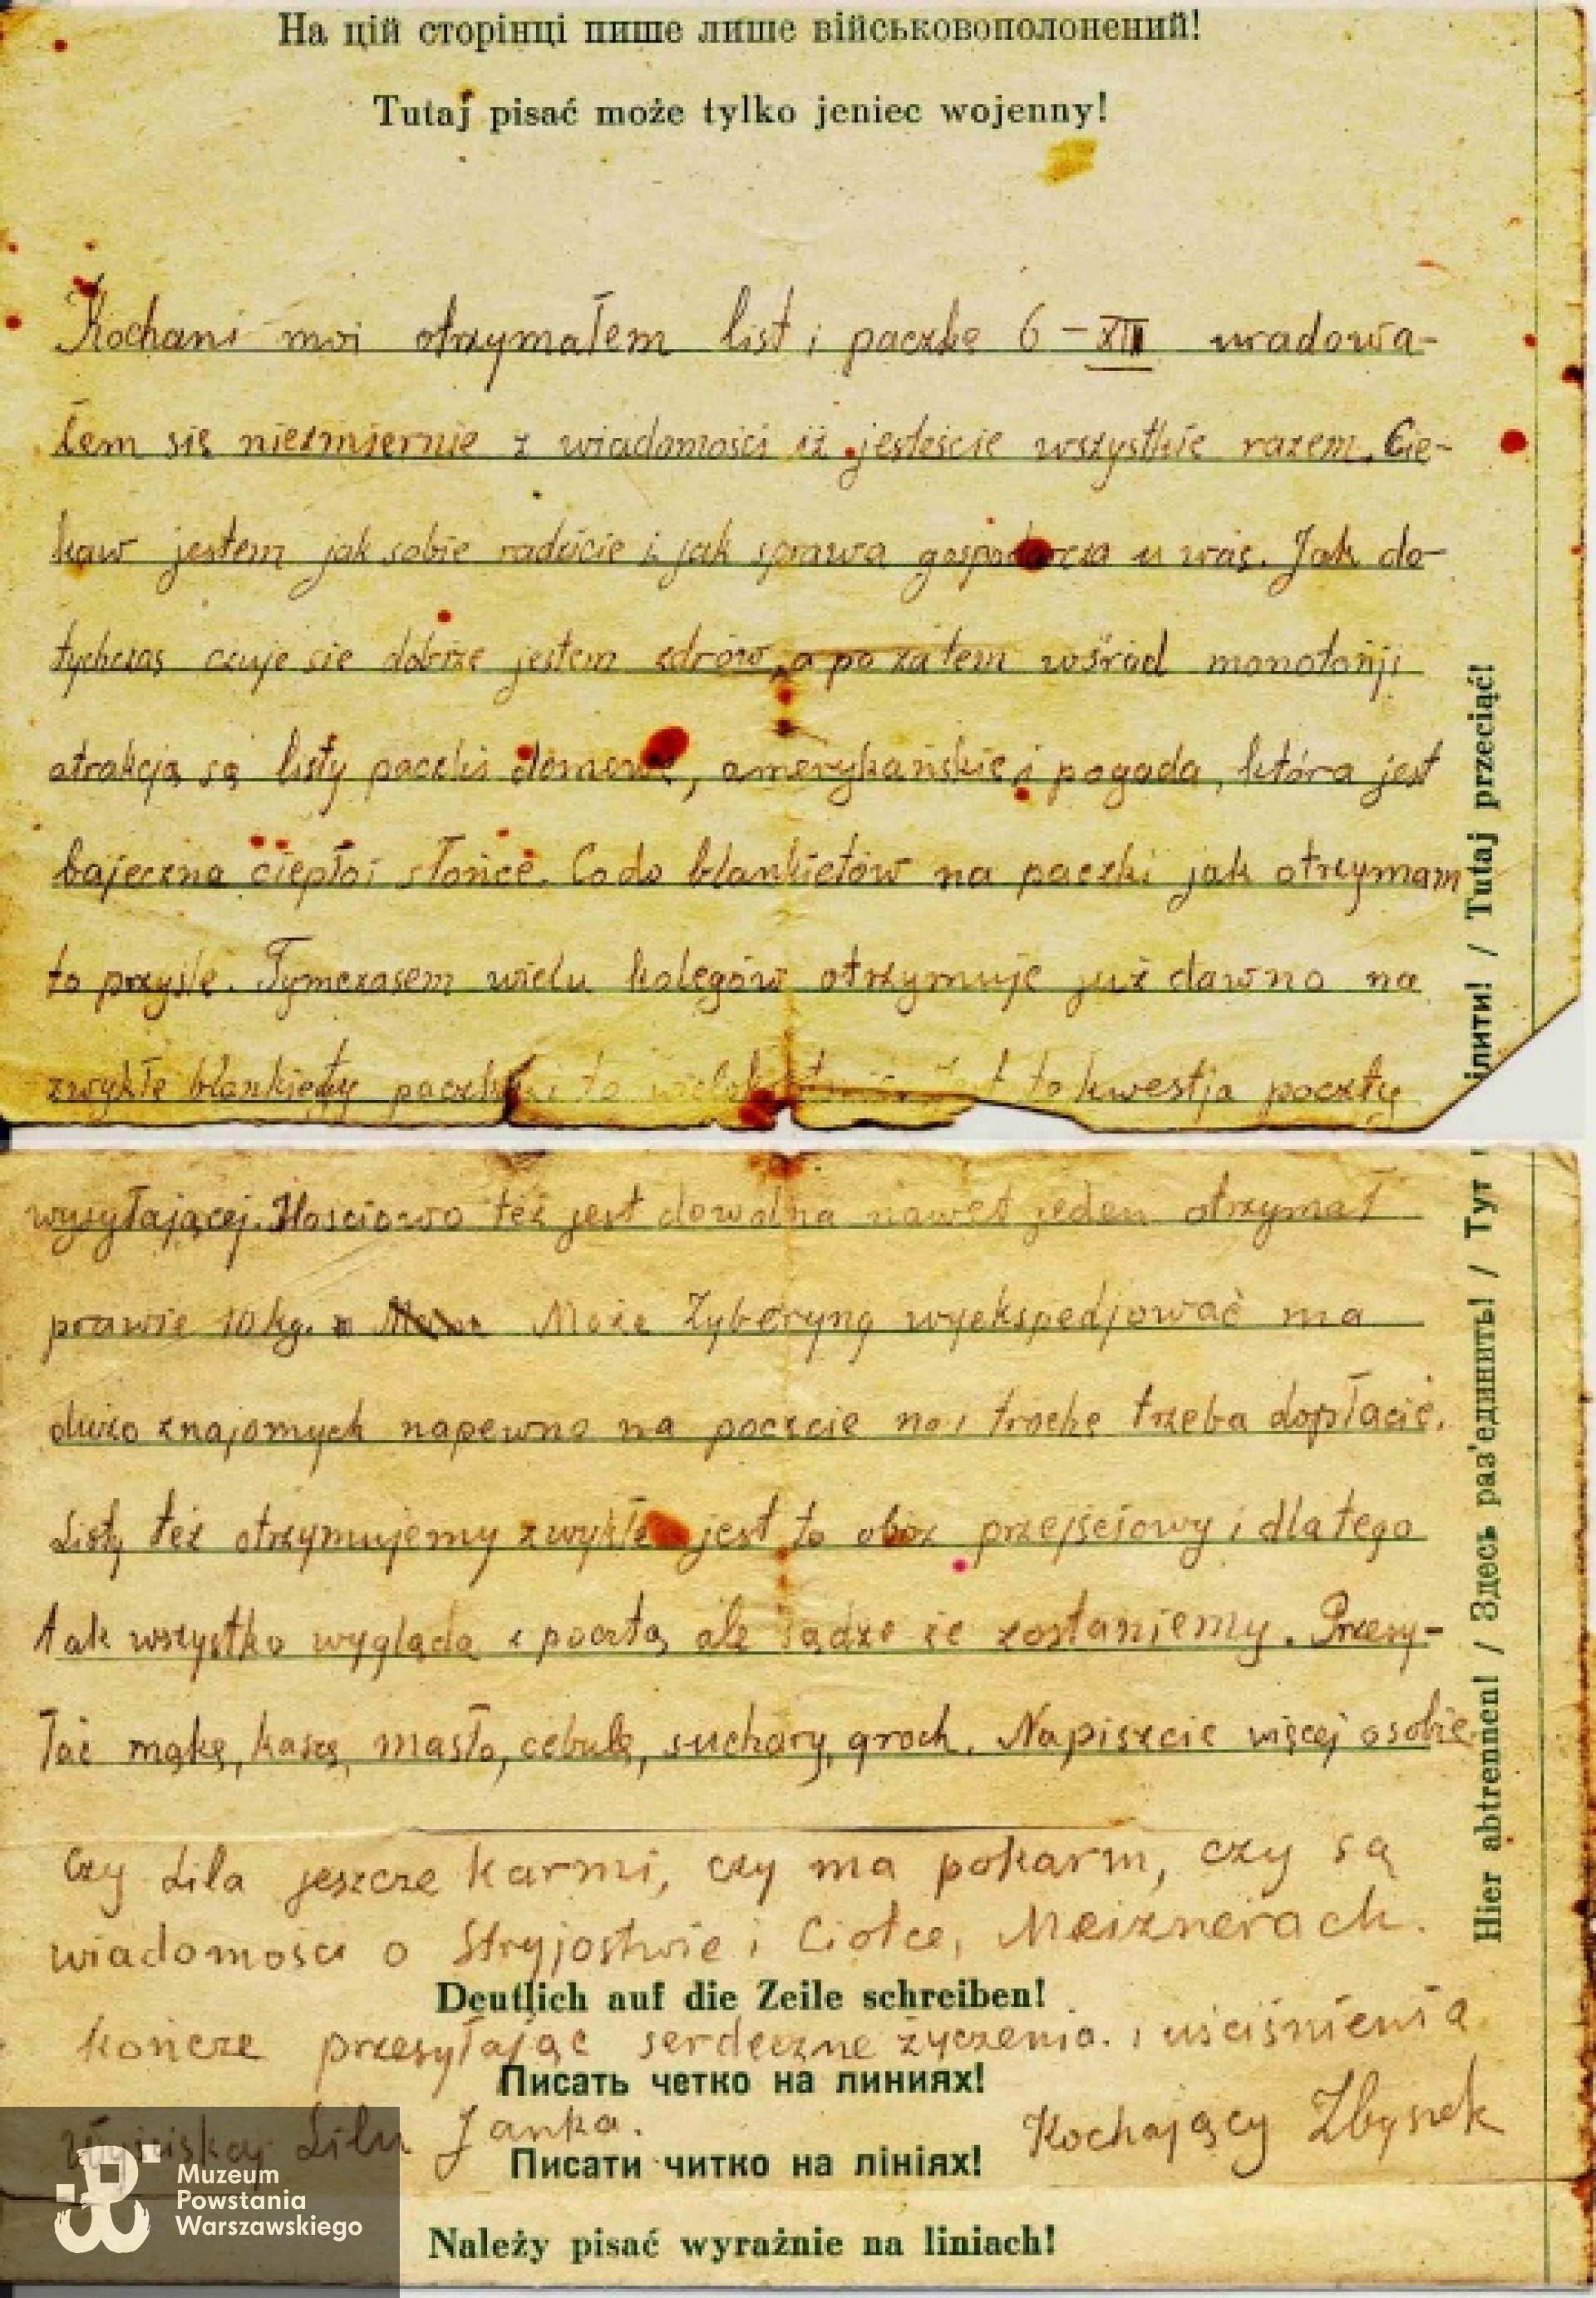 На цій сторінці пише лише військовополонений!
Tutaj pisać może tylko jeniec wojenny!
Kochani moi otrzymałem list i paczkę 6-XII uradowa-
łem się niezmiernie z wiadomości iż jesteście wszystkie razem. Cie-
kaw jestem jak sobie radzicie i jak sprawa gospodarcza u was. Jak do-
tychczas czuje sie dobrze jestem zdrów, a po zatem wśród monotonji
atrakcją są listy paczki domowe, amerykańskie i pogoda, która jest
bajeczna ciepło i słońce. Co do blankietów na paczki jak otrzymam
to przyśle. Tymczasem wielu kolegów otrzymuje już dawno na
zwykłe blankiety paczki i to to kwestja poczty
wysyłającej. Ilościowo też jest dowolna nawet jeden otrzymał
prawie 10 kg. Może Zyberyng wyekspedjować ma
dużo znajomych napewno na poczcie no i trochę trzeba dopłacić.
Listy też otrzymujemy zwykłe jest to obóz przejściowy i dlatego
tak wszystko wygląda z pocztą ale sądze że zostaniemy. Przesy-
łać mąkę, kaszę, masło, cebulę, suchary, groch. Napiszcie więcej o sobie
Czy Lila jeszcze karmi, czy ma pokarm, czy są
wiadomości o Stryjostwie i Ciotce, Meiznerach.
Deutlich auf die Zeile schreiben!
kończe przesyłając serdeczne życzenia i uściśnienia
Писать четко на линиях!
Lilu Janka. Kochający Zbyszek
Писати читко на лініях!
Należy pisać wyraźnie na liniach!
Hier abtrennen! / Здесь раз'единить! / Тут ілити! / Tutaj przeciąć!
Muzeum
Powstania
Warszawskiego